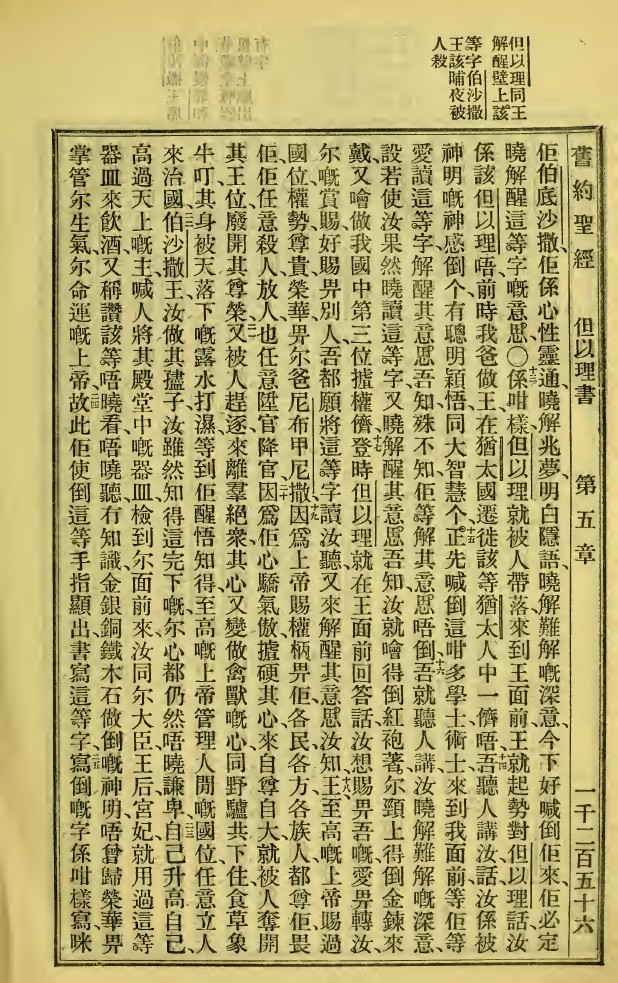 但以理同王
解醒壁上該
等字伯沙撒
王該晡夜被
人殺
舊約聖經 但以理書 第五章 一千二百五十六
佢伯底沙撒佢係心性靈通、曉解兆夢、明白隱語、曉解難解嘅深意、今下好喊倒佢來、佢必定
曉解醒這等字嘅意思、〇十三係咁樣但以理就被人帶落來到王面前、王就起勢對但以理話、汝
係該但以理唔、前時我爸做王、在猶太國遷徙該等猶太人中一儕唔、十四吾聽人講汝話汝係被
神明嘅神感倒个、有聰明穎悟同大智慧个、十五正先喊倒這咁多學士術士來到我面前、等佢等
愛讀這等字、解醒其意思、吾知殊不知佢等解其意思唔倒、十六吾就聽人講汝曉解難解嘅深意、
設若使汝果然曉讀這等字、又曉解醒其意思、吾知汝就噲得倒紅袍著、尔頸上得倒金鍊來
戴、又噲做我國中第三位攎權儕、十七登時但以理就在王面前回答話、汝想賜畀吾嘅、愛畀轉汝、
尔嘅賞賜好賜畀別人、吾都願將這等字讀汝聽、又來解醒其意思汝知、十八王、至高嘅上帝賜過
國位權勢尊貴榮華、畀尔爸尼布甲尼撒、十九因為上帝賜權柄畀佢、各民各方各族人、都尊佢畏
佢、佢任意殺人放人、也任意陞官降官、二十因為佢心驕氣傲、攎硬其心來自尊自大、就被人奪開
其王位、廢開其尊榮、二一又被人趕逐來離羣絕衆、其心又變做禽獸嘅心、同野驢共下住、食草象
牛叮、其身被天落下嘅露水打濕、等到佢醒悟知得至高嘅上帝管理人間嘅國位、任意立人
來治國、二二伯沙撒王、汝做其孻子、汝雖然知得這完下嘅、尔心都仍然唔曉謙卑自己、二三升高自己、
高過天上嘅主、喊人將其殿堂中嘅器皿檢到尔面前來、汝同尔大臣王后宮妃、就用過這等
器皿來飲酒、又稱讚該等唔曉看唔曉聽冇知識、金銀銅鐵木石做倒嘅神明、唔曾歸榮華畀
掌管尔生氣、尔命運嘅上帝、二四故此佢使倒這等手指顯出、書寫這等字、二五寫倒嘅字係咁樣寫、咪